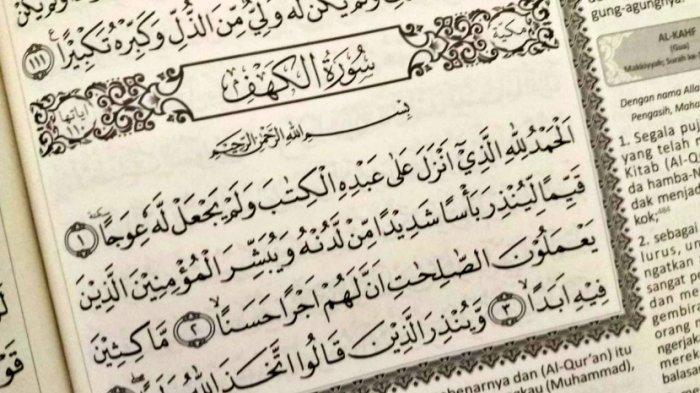 لَهُ وَلِيٌّ مِّنَ الذُّلِّ وَكَبِّرْهُ تَكْبِيْرًا ١١١
مكية
سُورَةُ الْكَهْفِ
آياتها ١١٠
بِسْمِ اللّٰهِ الرَّحْمٰنِ الرَّحِيْمِ
اَلْحَمْدُ لِلّٰهِ الَّذِيْٓ اَنْزَلَ عَلٰى عَبْدِهِ الْكِتٰبَ وَلَمْ يَجْعَلْ لَّهٗ عِوَجًا ۜ ١
قَيِّمًا لِّيُنْذِرَ بَأْسًا شَدِيْدًا مِّنْ لَّدُنْهُ وَيُبَشِّرَ الْمُؤْمِنِيْنَ الَّذِيْنَ
يَعْمَلُوْنَ الصّٰلِحٰتِ اَنَّ لَهُمْ اَجْرًا حَسَنًاۙ ٢ مَّاكِثِيْنَ
فِيْهِ اَبَدًاۙ ٣ وَّيُنْذِرَ الَّذِيْنَ قَالُوا اتَّخَذَ اللّٰهُ
gung-agungnya.
AL-KAHF
(Gua)
Makkiyyah; Surah ke-
Dengan nama Alla
Pengasih, Maha
1. Segala puj
yang telah m
Kitab (Al-Q
da hamba-N
dak menjad
kok;⁴⁸⁴
2. sebagai
lurus, u
ngatkan
sangat p
dan me
gembira
orang
ngerjak
mereka
balasan
benarnya dan (Al-Qur'an) itu
gkau (Muhammad),